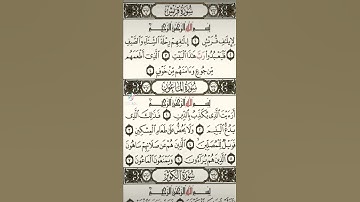 سُورَةُ قُرَيْشٍ
بِسْمِ اللَّهِ الرَّحْمَٰنِ الرَّحِيمِ
لِإِيلَافِ قُرَيْشٍ ۝ إِيلَافِهِمْ رِحْلَةَ الشِّتَاءِ وَالصَّيْفِ
۝ فَلْيَعْبُدُوا رَبَّ هَٰذَا الْبَيْتِ ۝ الَّذِي أَطْعَمَهُم
مِّن جُوعٍ وَآمَنَهُم مِّنْ خَوْفٍ ۝
سُورَةُ الْمَاعُونِ
بِسْمِ اللَّهِ الرَّحْمَٰنِ الرَّحِيمِ
أَرَأَيْتَ الَّذِي يُكَذِّبُ بِالدِّينِ ۝ فَذَٰلِكَ الَّذِي
يَدُعُّ الْيَتِيمَ ۝ وَلَا يَحُضُّ عَلَىٰ طَعَامِ الْمِسْكِينِ ۝
فَوَيْلٌ لِّلْمُصَلِّينَ ۝ الَّذِينَ هُمْ عَن صَلَاتِهِمْ سَاهُونَ
۝ الَّذِينَ هُمْ يُرَاءُونَ ۝ وَيَمْنَعُونَ الْمَاعُونَ ۝
سُورَةُ الْكَوْثَرِ
بِسْمِ اللَّهِ الرَّحْمَٰنِ الرَّحِيمِ